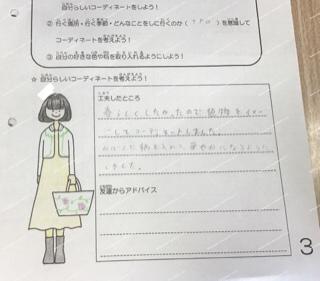 自分らしいコーディネートをしよう！
② 行く場所・行く季節・どんなことをしに行くのか（TPO）を意識して
コーディネートを考えよう！
③ 自分の好きな色や柄を取り入れるようにしよう！
☆ 自分らしいコーディネートを考えよう！
工夫したところ
春らしくしたかったので植物をイメ
ージしてコーディネートしました。
柄を入れて華やかになるように
しました。
友達からアドバイス
3